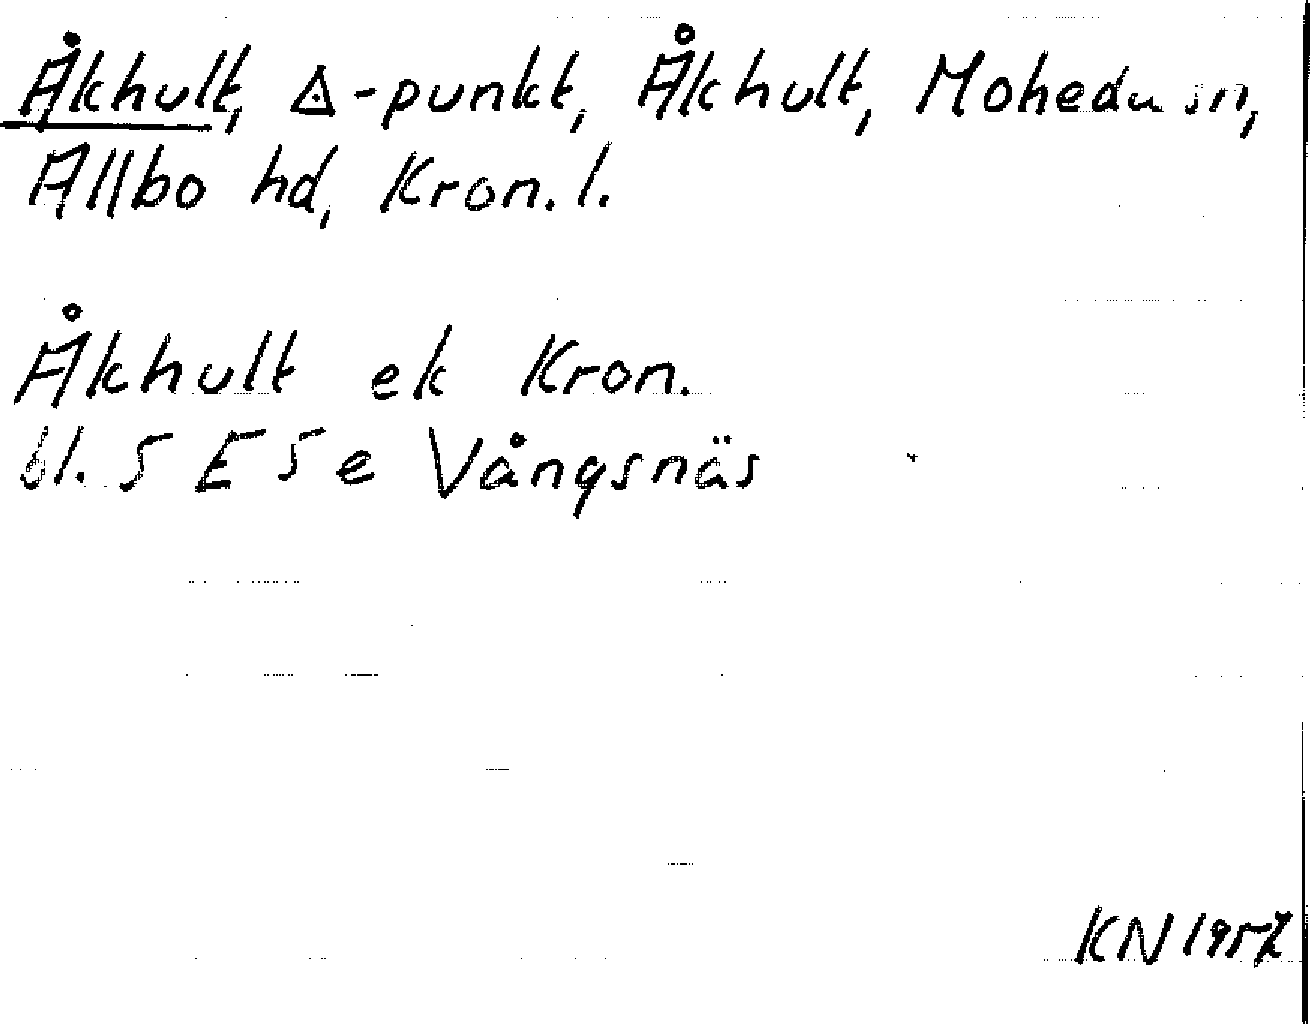 Åkhult, △-punkt, Åkhult, Moheda sn,
Allbo hd, Kron. l.
Åkhult ek Kron.
bl. 5 E 5 e Vångsnäs
KN 1957